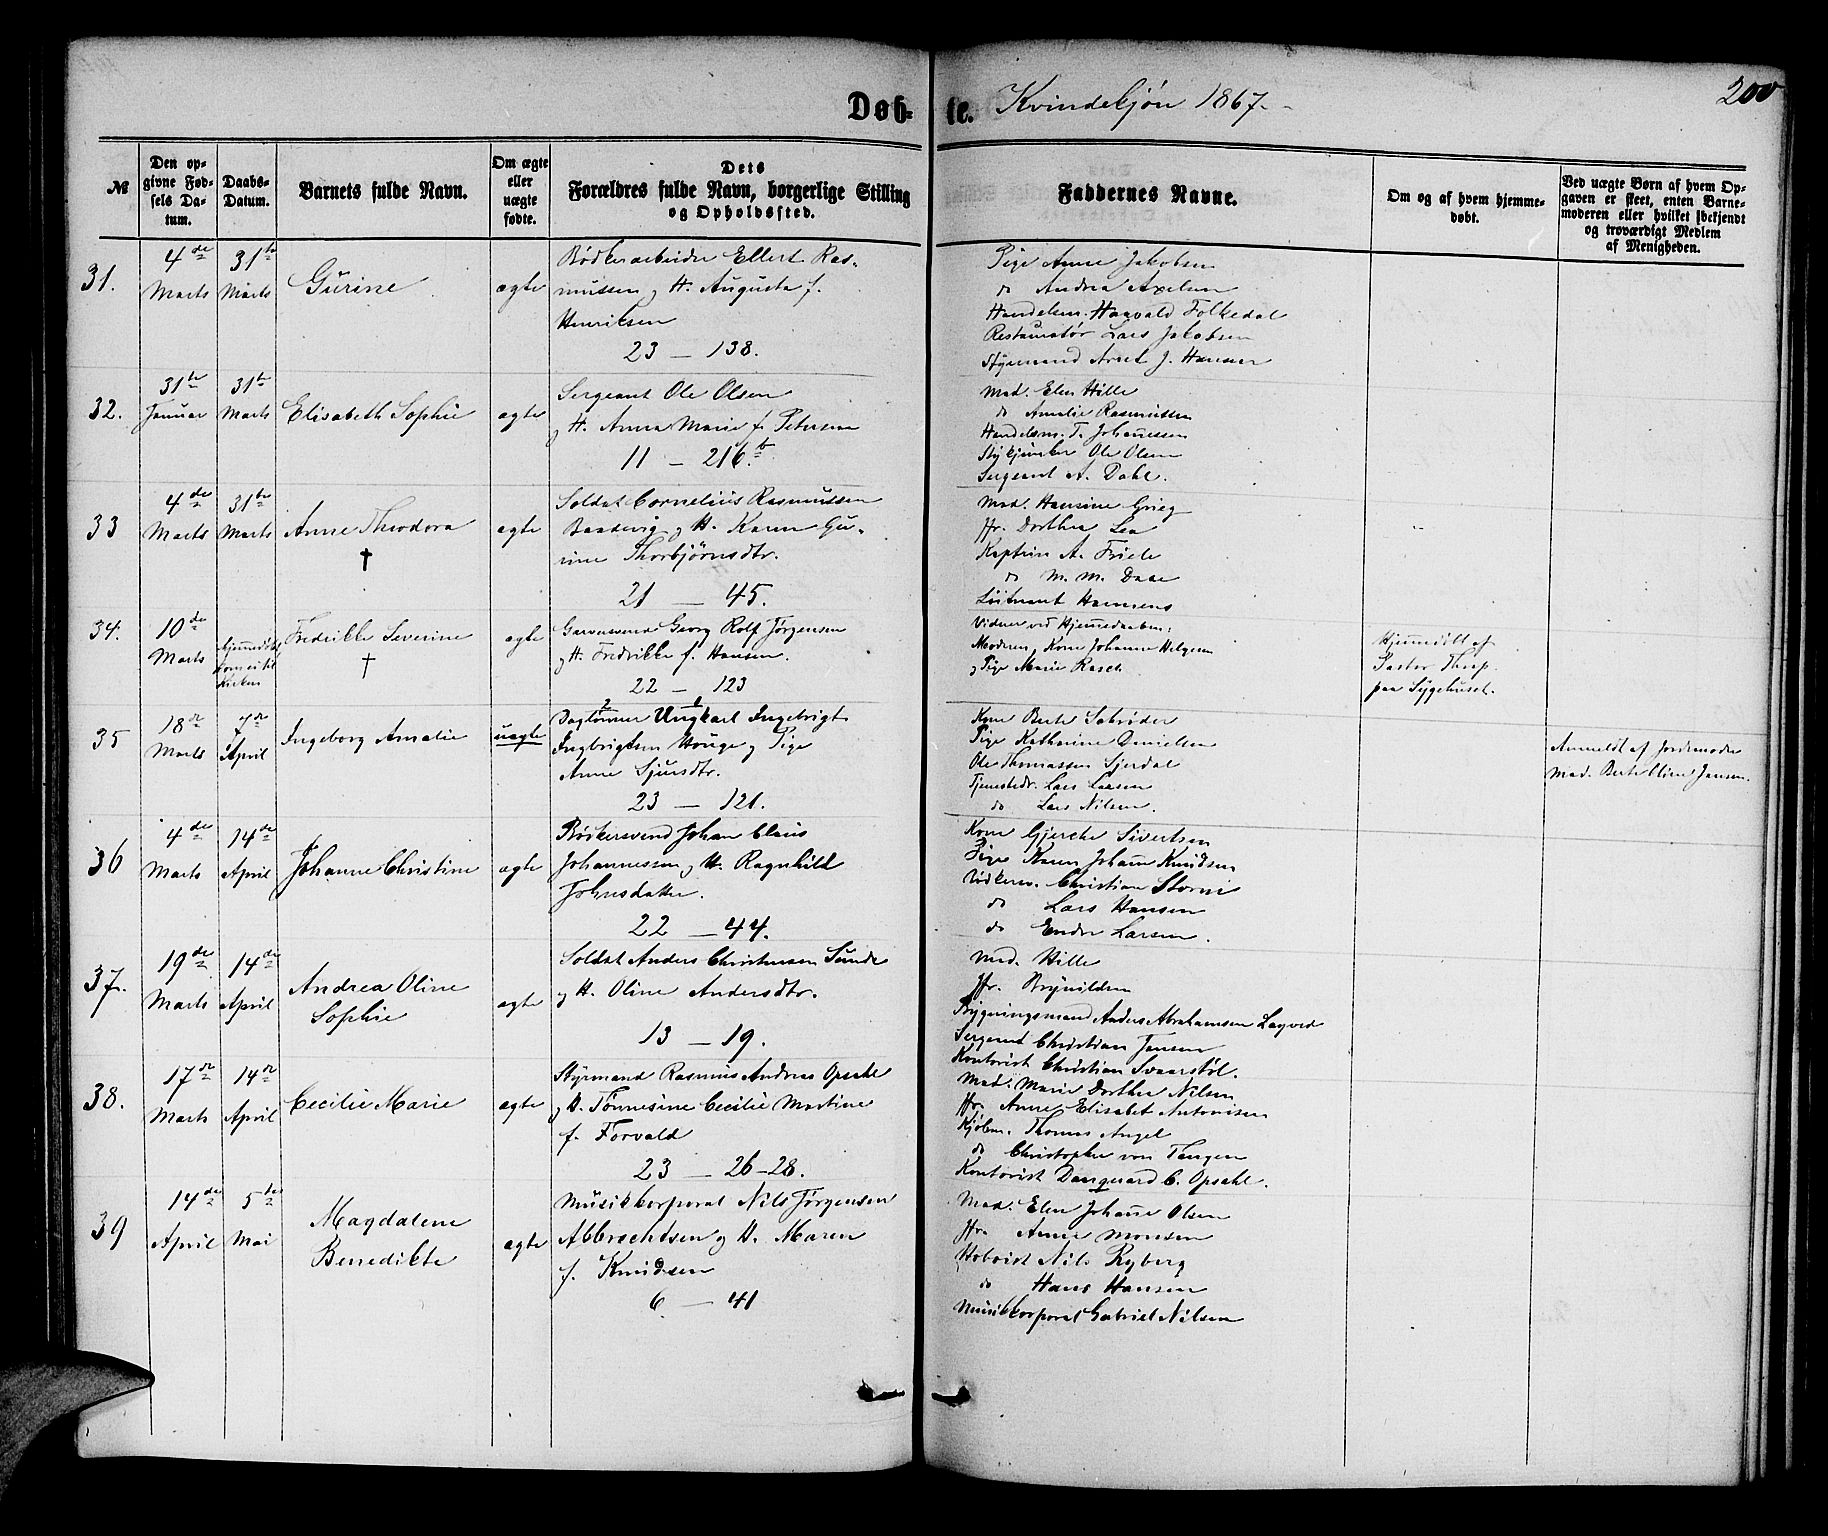 Døb-te. Kvindekjøn 1867.
200
№
Den opgivne Fødsels Datum.
Daabs-Datum.
Barnets fulde Navn.
Om ægte eller uægte fødte.
Dets Forældres fulde Navn, borgerlige Stilling og Opholdssted.
Faddernes Navne.
Om og af hvem hjemmedøbt.
Ved uægte Børn af hvem Opgaven er skeet, enten Barnemoderen eller hvilket bekjendt og troværdigt Medlem af Menigheden.
31.
4de Marts
31te Marts
Gurine
ægte
Bødkerarbeider Ellert Ras-
mussen og H. Augusta f.
Henriksen
23 — 138.
Pige Anne Jakobsen
do Andrea Axelsen
Handelsm. Haavald Folkedal
Restauratør Lars Jakobsen
Styrmand Arnt J. Hansen
32.
31te Januar
31te Marts
Elisabeth Sophie
ægte
Sergeant Ole Olsen
og H. Anna Marie f. Petersen
11 — 216.b
Mad. Elen Hille
do Amalie Rasmussen
Handelsm. T. Johannessen
Stykjunker Ole Olsen
Sergeant A. Dahl.
33
4de Marts
31te Marts
Anne Theodora
†
ægte
Soldat Cornelius Rasmussen
Baadsvig og H. Karen Gu-
rine Thorbjørnsdtr.
21 — 45.
Mad. Hansine Grieg
Jfr. Dorthea Lea
Kaptein A. Friele
do M. M. Daae
Løitnant Hansens
34.
10de Marts
hjemmedøbt
Kirken
Fredrikke Severine
†
ægte
Garversvend Georg Rolf Jørgensen
og H. Fredrikke f. Hansen.
22 — 123
Vidner ved Hjemmedaaben:
Moderen, Kone Johanne Helgesen
og Pige Marie Rasch
Hjemmedøbt af
Pastor
paa Sygehuset.
35
18de Marts
7de April
Ingeborg Amalie
uægte
Daglønner Ungkarl Ingebrigt
Ingbrigtsen Houge og Pige
Anne Sjursdtr.
23 — 121.
Kone Berte Schrøder
Pige Katharine Danielsen
Ole Thomassen Sjerdal
Tjenestedr. Lars Larsen
do Lars Nilsen.
Anmeldt af Jordemoder
Mad. Berte Oline Jansen.
36
4de Marts
14de April
Johanne Christine
ægte
Bødkersvend Johan Claus
Johannessen og H. Ragnhild
Johnsdatter.
22 — 44.
Kone Gjerche Sivertsen
Pige Karen Johanne Knudsen
Bødkersv. Christian Storm
do Lars Hansen
do Endre Larsen.
37.
19de Marts
14de April
Andrea Oline
Sophie
ægte
Soldat Anders Christensen Sunde
og H. Oline Andersdtr.
13 — 19.
Mad. Hille
Jfr. Brynildsen
Bygningsmand Anders Abrahamsen
Sergeant Christian Jensen
Kontorist Christian Svaarstøl.
38.
17de Marts
14de April
Cecilie Marie
ægte
Styrmand Rasmus Andreas Opsahl
og H. Tønnesine Cecilie Martine
f. Forvald
23 — 26-28.
Mad. Marie Dorthea Nilsen
Jfr. Anne Elisabet Antonisen
Kjøbm. Thomas Angel
do Christopher von Tangen
Kontorist Danguard C. Opsahl.
39
14de April
5te Mai
Magdalene
Benedikte
ægte
Musikkorporal Nils Jørgensen
Albrechtsen og H. Maren
f. Knudsen
6 — 41
Mad. Elen Johanne Olsen
Jfr. Anne Monsen
Hoboist Nils Ryberg
do Hans Hansen
Musikkorporal Gabriel Nilsen